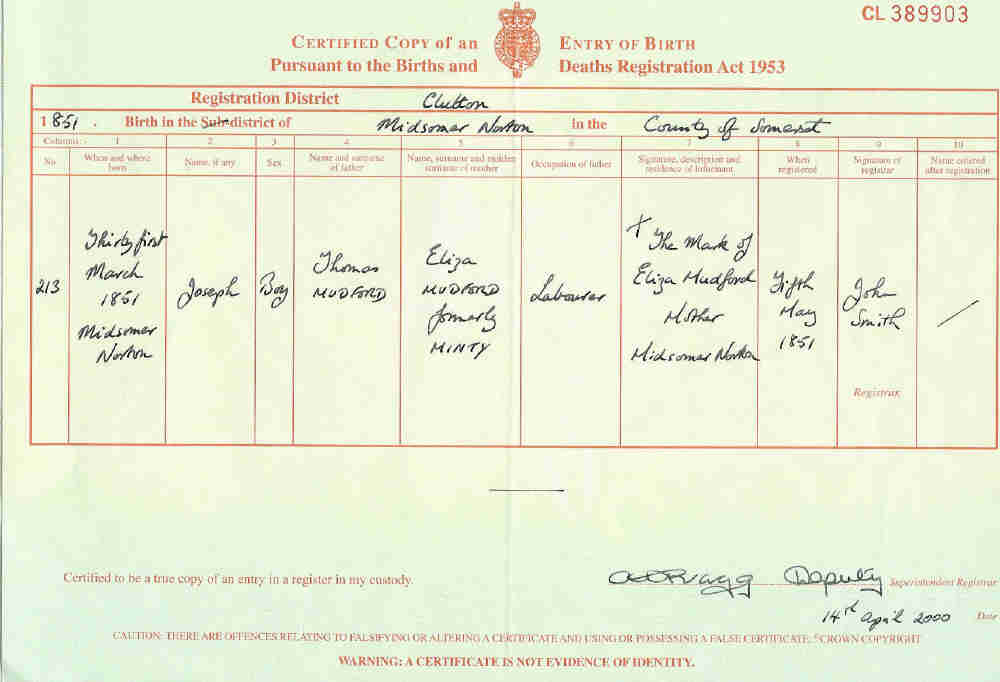 CL 389903
CERTIFIED COPY of an ENTRY OF BIRTH
Pursuant to the Births and Deaths Registration Act 1953
Registration District Clutton
1851. Birth in the Sub-district of Midsomer Norton in the County of Somerset
Columns:- 1 2 3 4 5 6 7 8 9 10
No
When and where
born
Name, if any
Sex
Name and surname
of father
Name, surname and maiden
surname of mother
Occupation of father
Signature, description and
residence of informant
When
registered
Signature of
registrar
Name entered
after registration
213
Thirty first
March
1851
Midsomer
Norton
Joseph
Boy
Thomas
MUDFORD
Eliza
MUDFORD
formerly
MINTY
Labourer
X The Mark of
Eliza Mudford
Mother
Midsomer Norton
Fifth
May
1851
John
Smith
Registrar
/
Certified to be a true copy of an entry in a register in my custody.
Deputy Superintendent Registrar
14th April 2000 Date
CAUTION: THERE ARE OFFENCES RELATING TO FALSIFYING OR ALTERING A CERTIFICATE AND USING OR POSSESSING A FALSE CERTIFICATE. ©CROWN COPYRIGHT
WARNING: A CERTIFICATE IS NOT EVIDENCE OF IDENTITY.